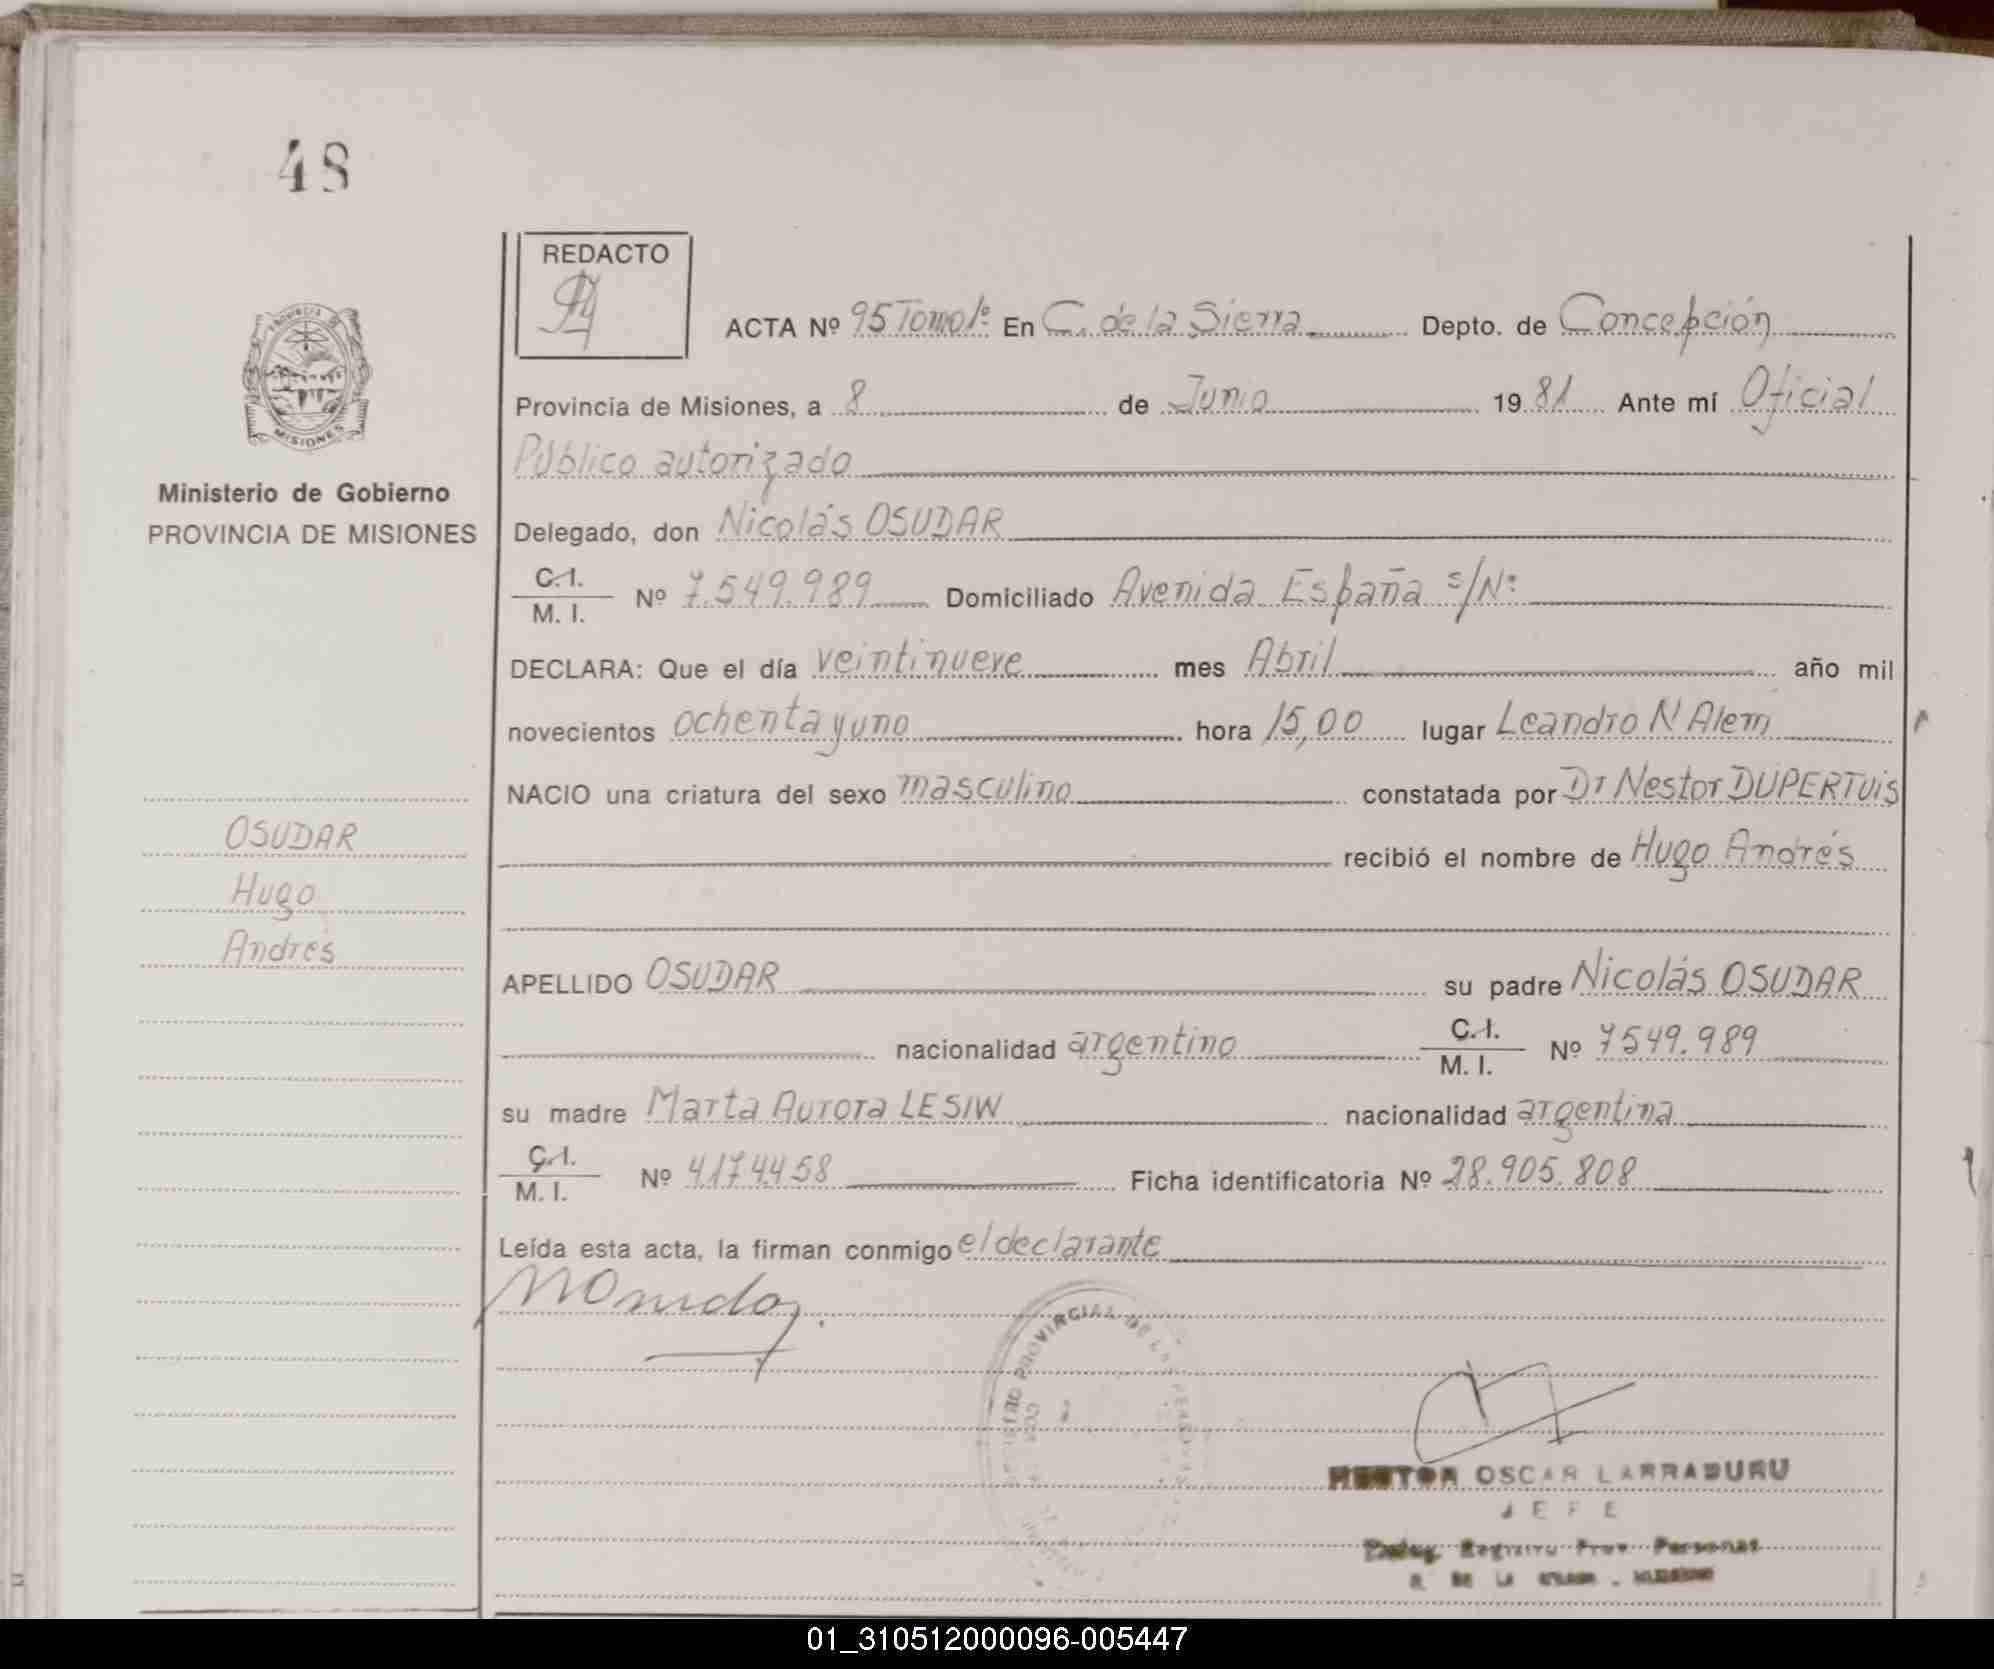 48
REDACTO
ACTA Nº 95 Tomo 1º En C. de la Sierra Depto. de Concepción
PROVINCIA DE
MISIONES
Provincia de Misiones, a 8 de Junio 1981 Ante mí Oficial
Público autorizado
Ministerio de Gobierno
PROVINCIA DE MISIONES
Delegado, don Nicolás OSUDAR
C.I.
M. I. Nº 7.549.989 Domiciliado Avenida España s/Nº
DECLARA: Que el día veintinueve mes Abril año mil
novecientos ochenta y uno hora 15,00 lugar Leandro N Alem
NACIO una criatura del sexo masculino constatada por Dr Nestor DUPERTUIS
OSUDAR
Hugo
Andrés
recibió el nombre de Hugo Andrés
APELLIDO OSUDAR su padre Nicolás OSUDAR
nacionalidad argentino C.I.
M. I. Nº 7549.989
su madre Marta Aurora LESIW nacionalidad argentina
C.I.
M. I. Nº 4174458 Ficha identificatoria Nº 28.905.808
Leída esta acta, la firman conmigo el declarante
PROVINCIAL DE LAS PERSONAS
OSCAR LARRABURU
JEFE
Registro Prov. Personas
DE LA
01_310512000096-005447